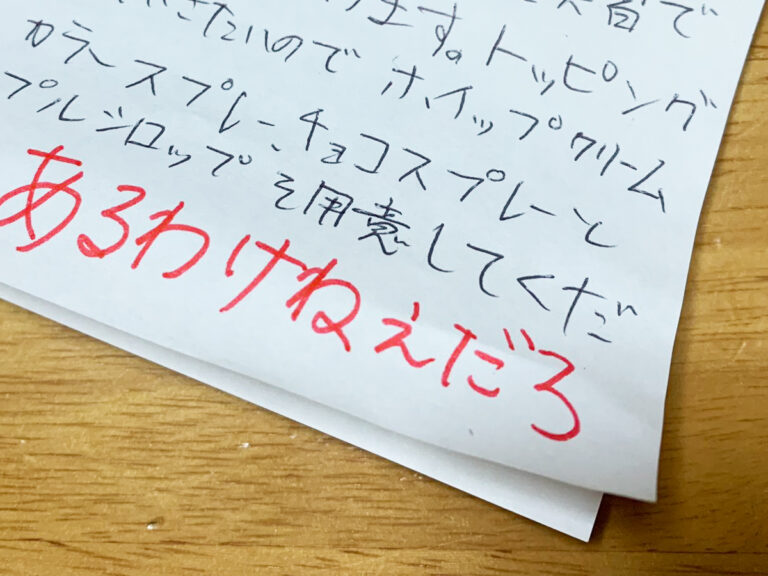 ます。トッピング
たいのでホイップクリーム
カラースプレー、チョコスプレーと
プルシロップを用意してくだ
あるわけねぇだろ